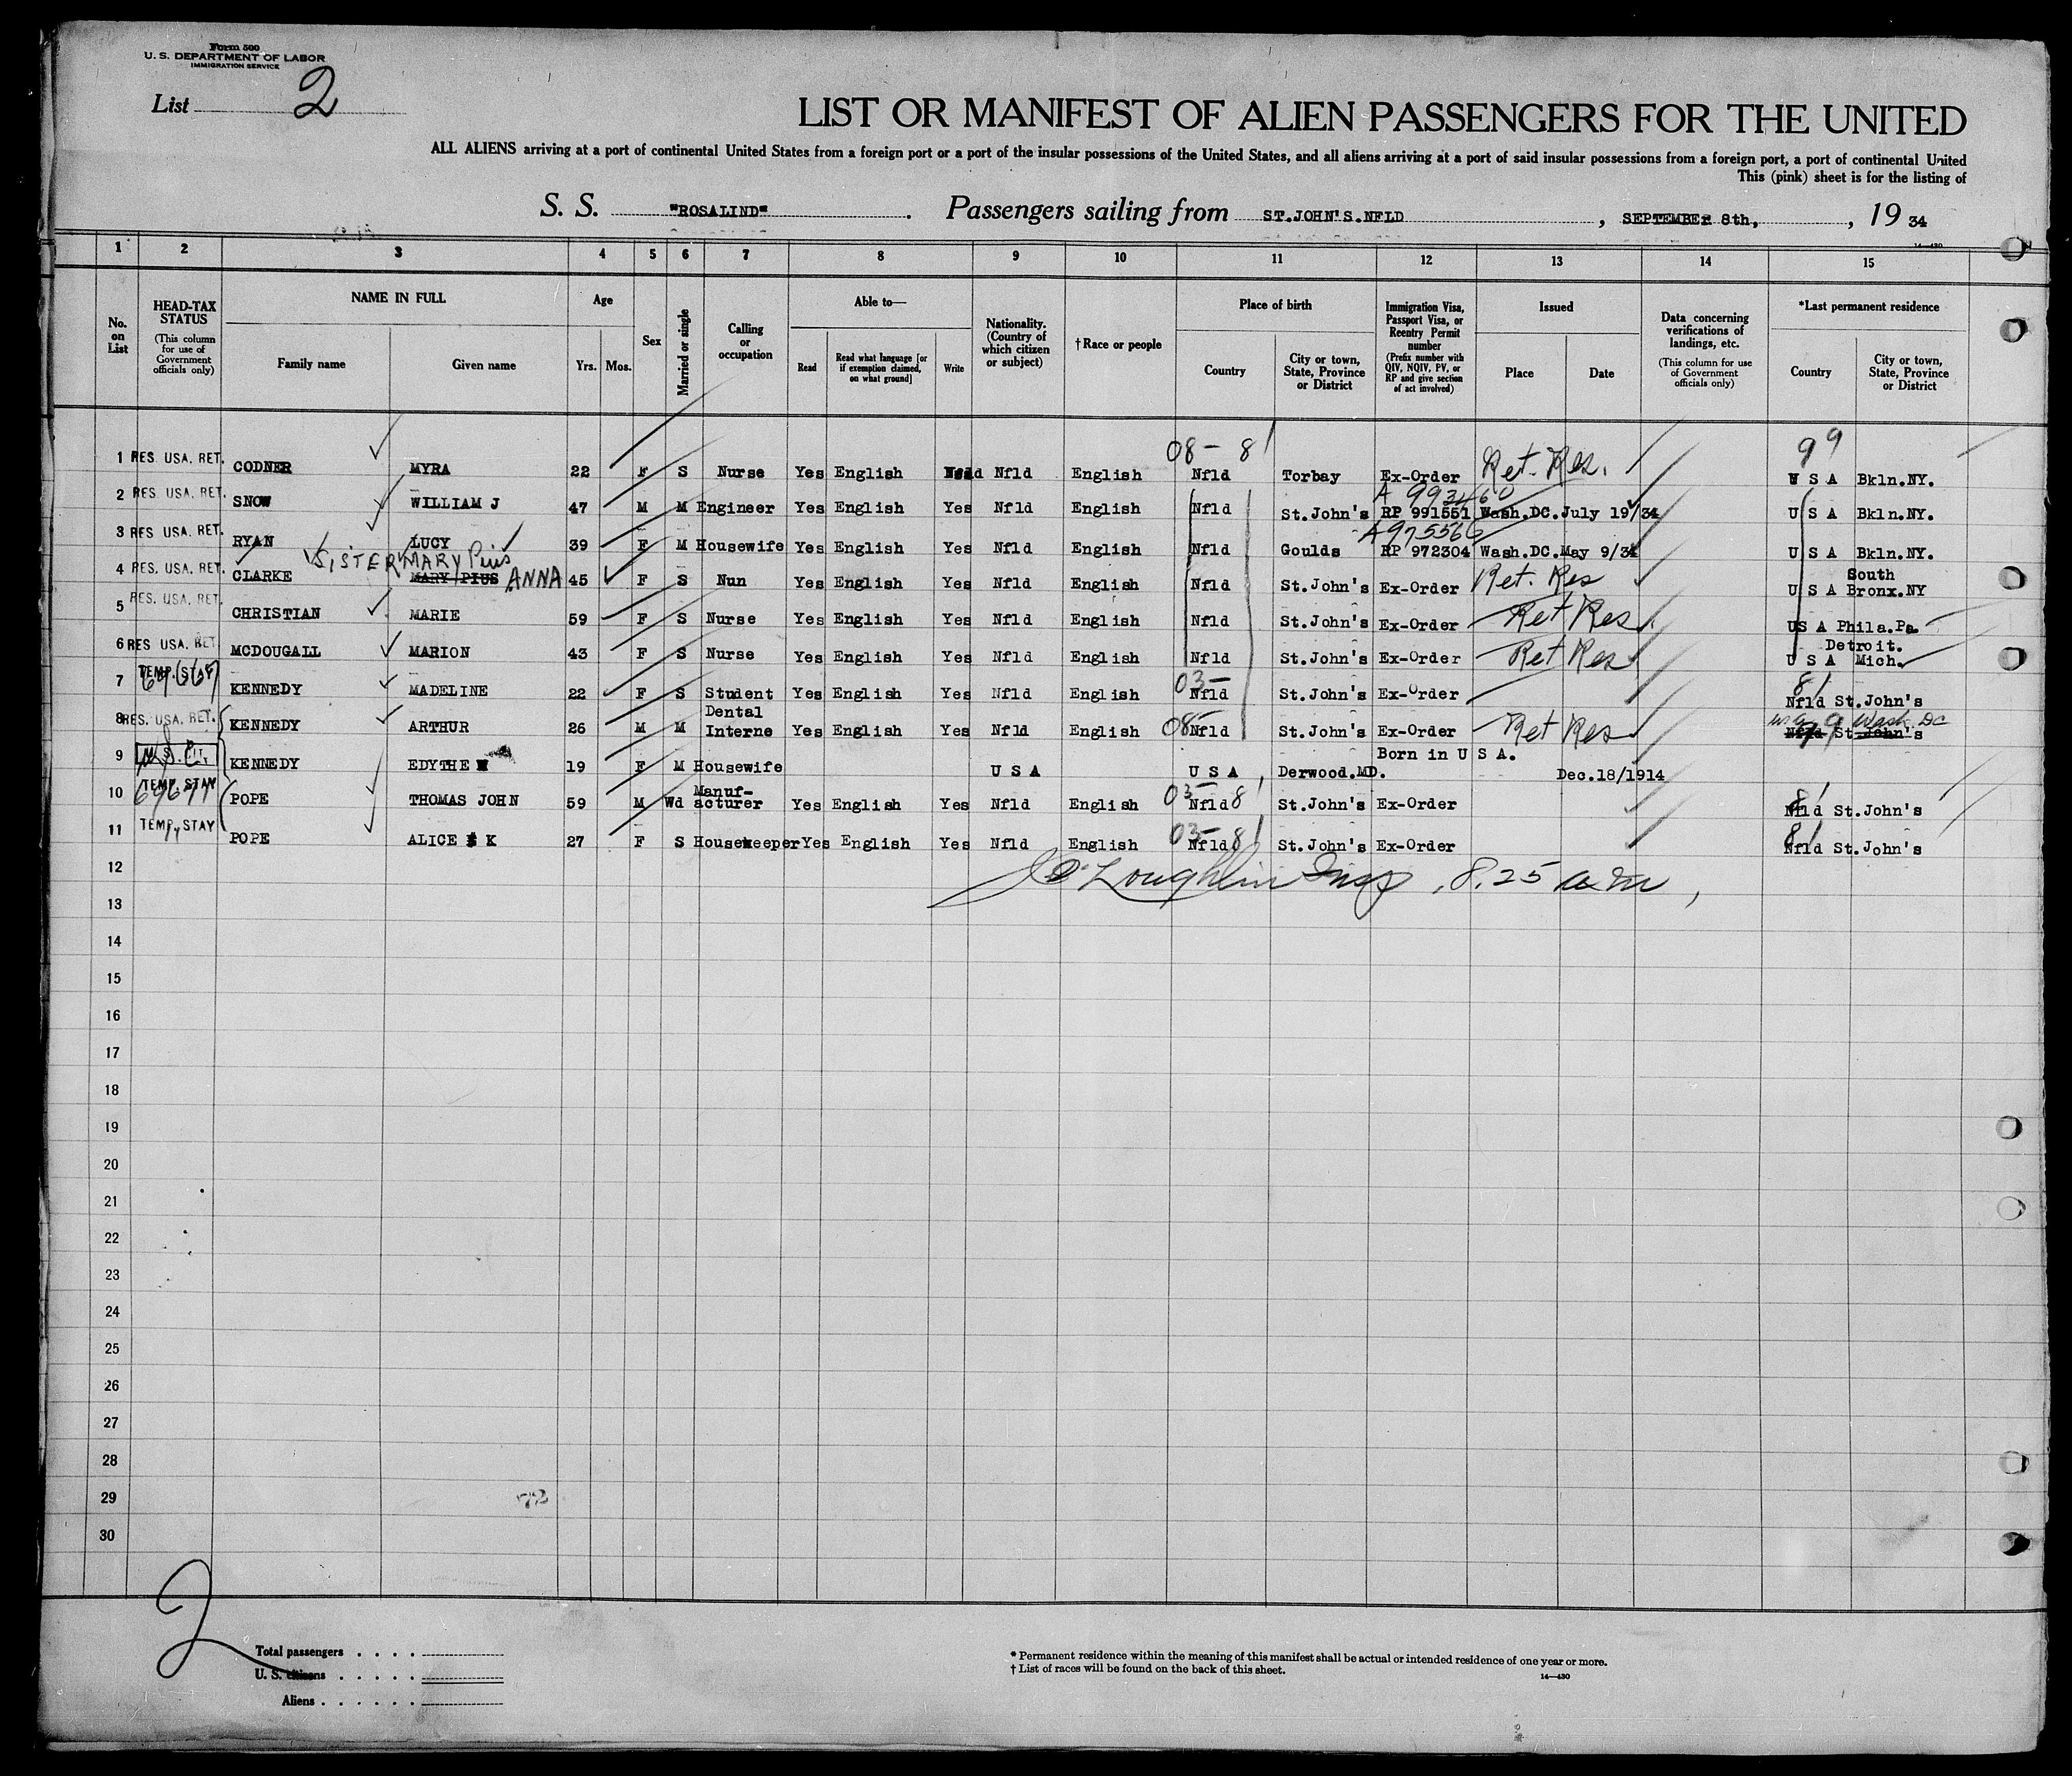 Form 500
U. S. DEPARTMENT OF LABOR
IMMIGRATION SERVICE
List 2
LIST OR MANIFEST OF ALIEN PASSENGERS FOR THE UNITED
ALL ALIENS arriving at a port of continental United States from a foreign port or a port of the insular possessions of the United States, and all aliens arriving at a port of said insular possessions from a foreign port, a port of continental United
This (pink) sheet is for the listing of
S. S. "ROSALIND". Passengers sailing from ST.JOHN'S.NFLD, SEPTEMBER 8th, , 19 34
14—430
1 2 3 4 5 6 7 8 9 10 11 12 13 14 15
No. on List
HEAD-TAX STATUS (This column for use of Government officials only)
NAME IN FULL
Family name Given name
Age
Yrs. Mos.
Sex
Married or single
Calling or occupation
Able to—
Read Read what language [or if exemption claimed, on what ground] Write
Nationality. (Country of which citizen or subject)
†Race or people
Place of birth
Country City or town, State, Province or District
Immigration Visa, Passport Visa, or Reentry Permit number (Prefix number with QIV, NQIV, PV, or RP and give section of act involved)
Issued
Place Date
Data concerning verifications of landings, etc. (This column for use of Government officials only)
*Last permanent residence
Country City or town, State, Province or District
08- 81 99
1 RES USA. RET. CODNER MYRA 22 F S Nurse Yes English Nfld English Nfld Torbay Ex-Order Ret. Res. U S A Bkln.NY.
A 993460
2 RES USA. RET. SNOW WILLIAM J 47 M M Engineer Yes English Yes Nfld English Nfld St.John's RP 991551 Wash.DC. July 19/34 U S A Bkln.NY.
A975566
3 RES USA. RET. RYAN LUCY 39 F M Housewife Yes English Yes Nfld English Nfld Goulds RP 972304 Wash.DC. May 9/34 U S A Bkln.NY.
SISTER MARY Pius
4 RES. USA. RET. CLARKE MARY PIUS ANNA 45 F S Nun Yes English Yes Nfld English Nfld St.John's Ex-Order Ret. Res U S A South Bronx.NY
5 RES. USA. RET. CHRISTIAN MARIE 59 F S Nurse Yes English Yes Nfld English Nfld St.John's Ex-Order Ret Res US A Phila.Pa
6 RES USA. RET MCDOUGALL MARION 43 F S Nurse Yes English Yes Nfld English Nfld St.John's Ex-Order Ret Res U S A Detroit. Mich.
03- 81
7 TEMP. STAY KENNEDY MADELINE 22 F S Student Yes English Yes Nfld English Nfld St.John's Ex-Order Nfld St.John's
8 RES. USA. RET. KENNEDY ARTHUR 26 M M Dental Interne Yes English Yes Nfld English 08- Nfld St.John's Ex-Order Ret Res 99 Wash DC Nfld St.John's
9 U. S. CIT. KENNEDY EDYTHE 19 F M Housewife U S A U S A Derwood.MD. Born in U S A. Dec.18/1914
10 TEMP. STAY POPE THOMAS JOHN 59 M Wd Manuf-acturer Yes English Yes Nfld English 03- Nfld 81 St.John's Ex-Order 81 Nfld St.John's
11 TEMP. STAY POPE ALICE K 27 F S Housekeeper Yes English Yes Nfld English 03- Nfld 81 St.John's Ex-Order 81 Nfld St.John's
12
O'Loughlin Insp, 8.25 am,
13
14
15
16
17
18
19
20
21
22
23
24
25
26
27
28
29
72
30
2
Total passengers . . . .
U. S. citizens . . . . .
Aliens . . . . . .
* Permanent residence within the meaning of this manifest shall be actual or intended residence of one year or more.
† List of races will be found on the back of this sheet.
14—430